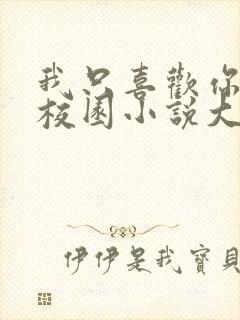 我只喜歡你
校園小說大
伊伊是我寶貝